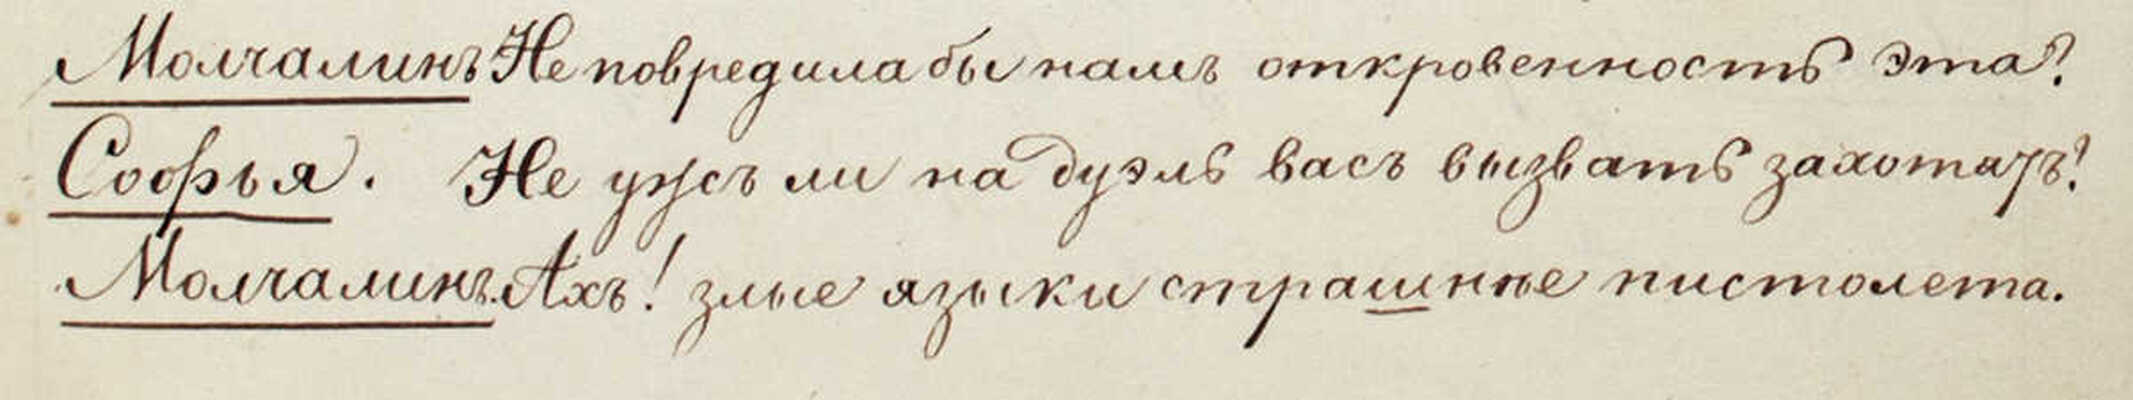 Молчалинъ Не повредила бы намъ откровенность эта?
Софья. Не ужъ ли на дуэль васъ вызвать захотятъ?
Молчалинъ. Ахъ! злые языки страшнѣе пистолета.